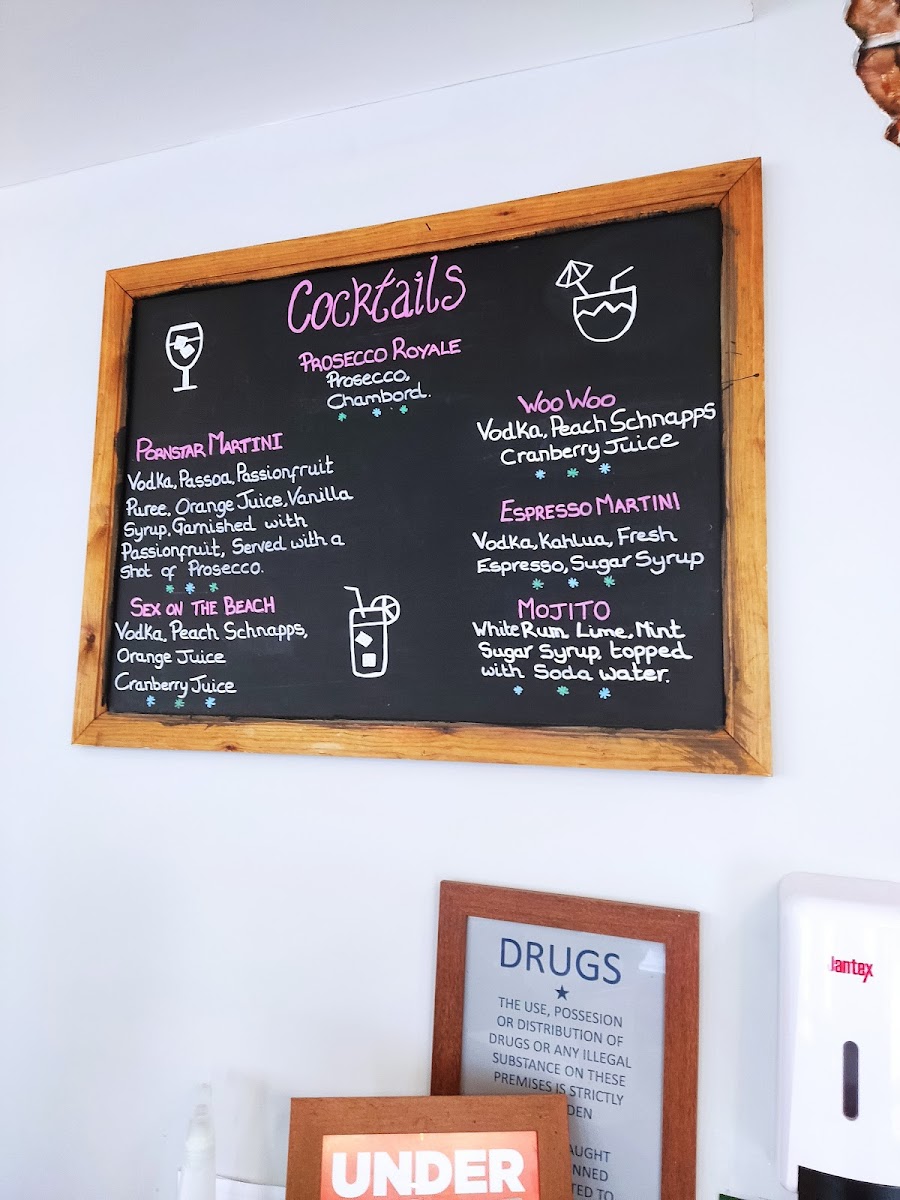 Cocktails
PROSECCO ROYALE
Prosecco,
Chambord.
PORNSTAR MARTINI
Vodka, Passoa, Passionfruit
Puree, Orange Juice, Vanilla
Syrup, Garnished with
Passionfruit, Served with a
Shot of Prosecco.
SEX ON THE BEACH
Vodka, Peach Schnapps,
Orange Juice
Cranberry Juice
WOO WOO
Vodka, Peach Schnapps
Cranberry Juice
ESPRESSO MARTINI
Vodka, Kahlua, Fresh
Espresso, Sugar Syrup
MOJITO
White Rum, Lime, Mint
Sugar Syrup, topped
with Soda water.
DRUGS
THE USE, POSSESION
OR DISTRIBUTION OF
DRUGS OR ANY ILLEGAL
SUBSTANCE ON THESE
PREMISES IS STRICTLY
UNDER
Jantex